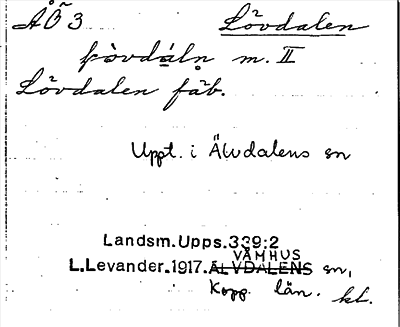 ÅÖ 3 Lövdalen
þòvdáln m. II
Lövdalen fäb.
Uppt. i Älvdalens sn
Landsm. Upps. 339:2
VÅMHUS
L. Levander. 1917. ÄLVDALENS sn,
Kopp. län. kl.